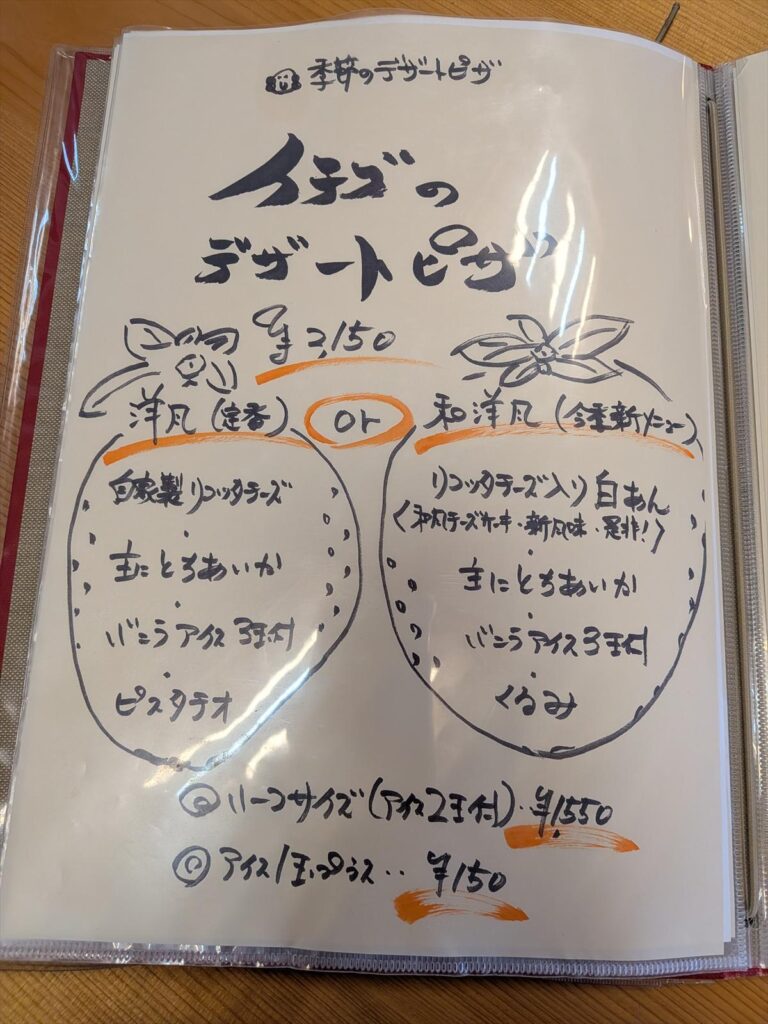 季節のデザートピザ
イチゴの
デザートピザ
¥2,150
洋風(定番)
or
和洋風(今季新メニュー)
自家製リコッタチーズ
・
主にとちあいか
・
バニラアイス3玉付
・
ピスタチオ
リコッタチーズ入り白あん
(和風チーズケーキ・新風味・是非!)
・
主にとちあいか
・
バニラアイス3玉付
・
くるみ
ハーフサイズ(アイス2玉付)‥¥1,550
アイス1玉プラス‥¥150